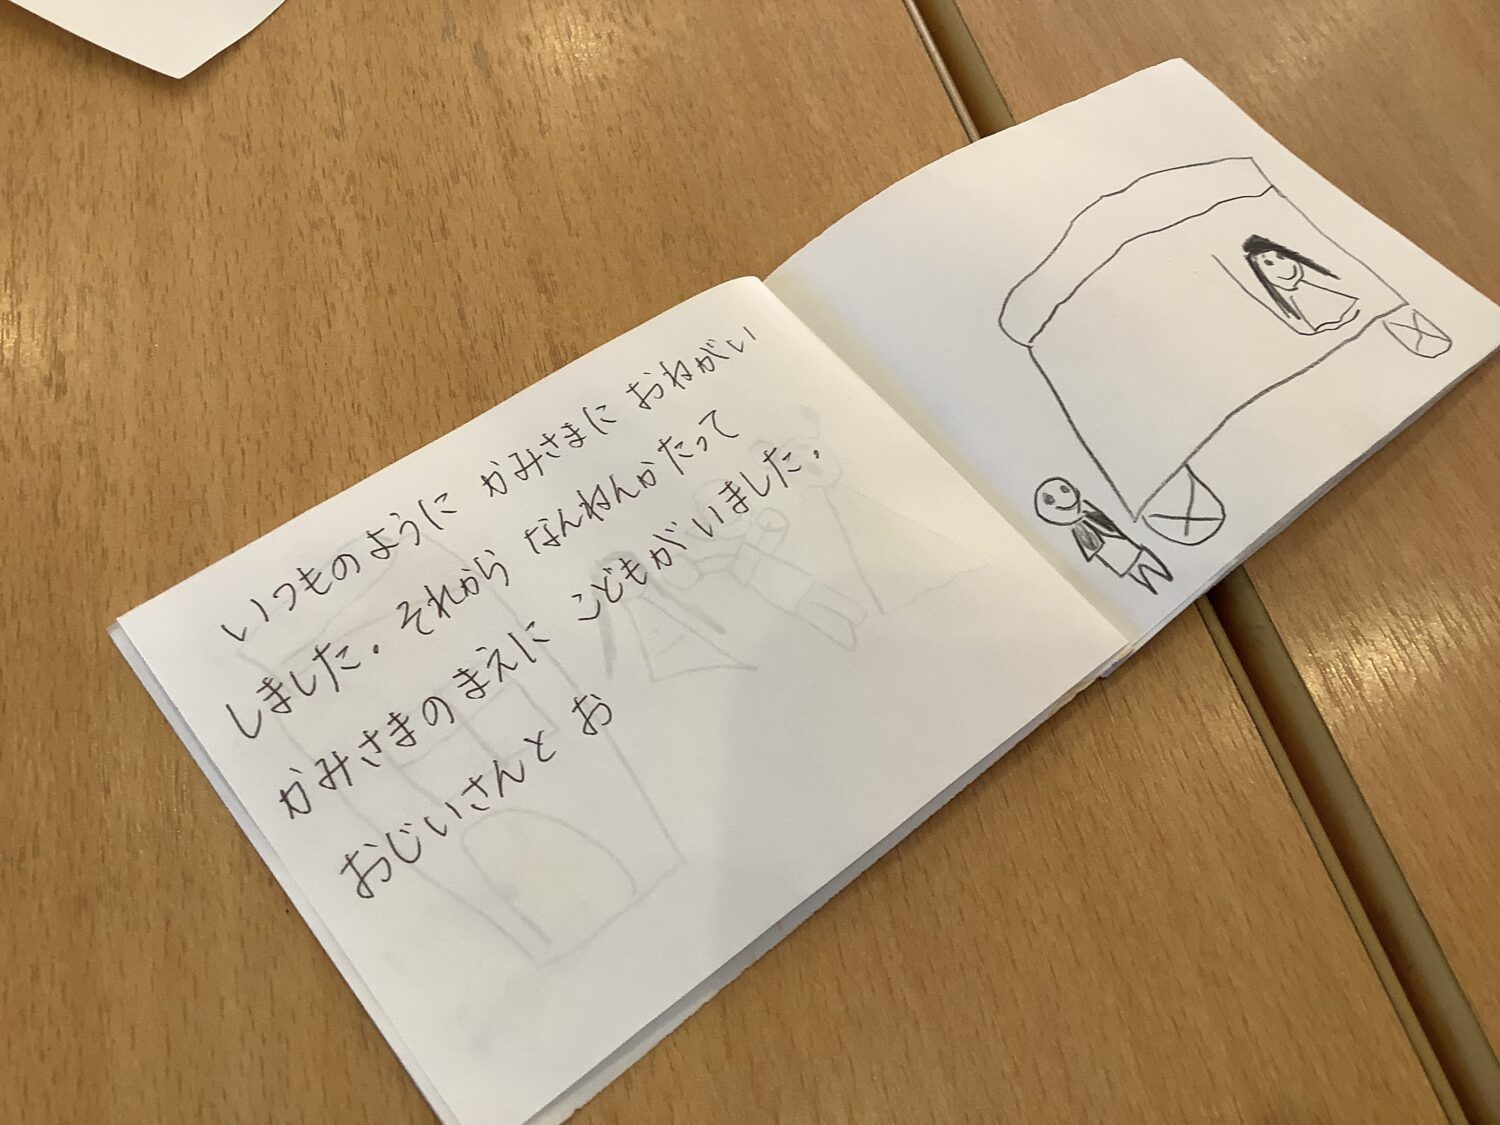 いつものように かみさまに おねがい
しました。それから なんねんかたって
かみさまのまえに こどもがいました。
おじいさんと お